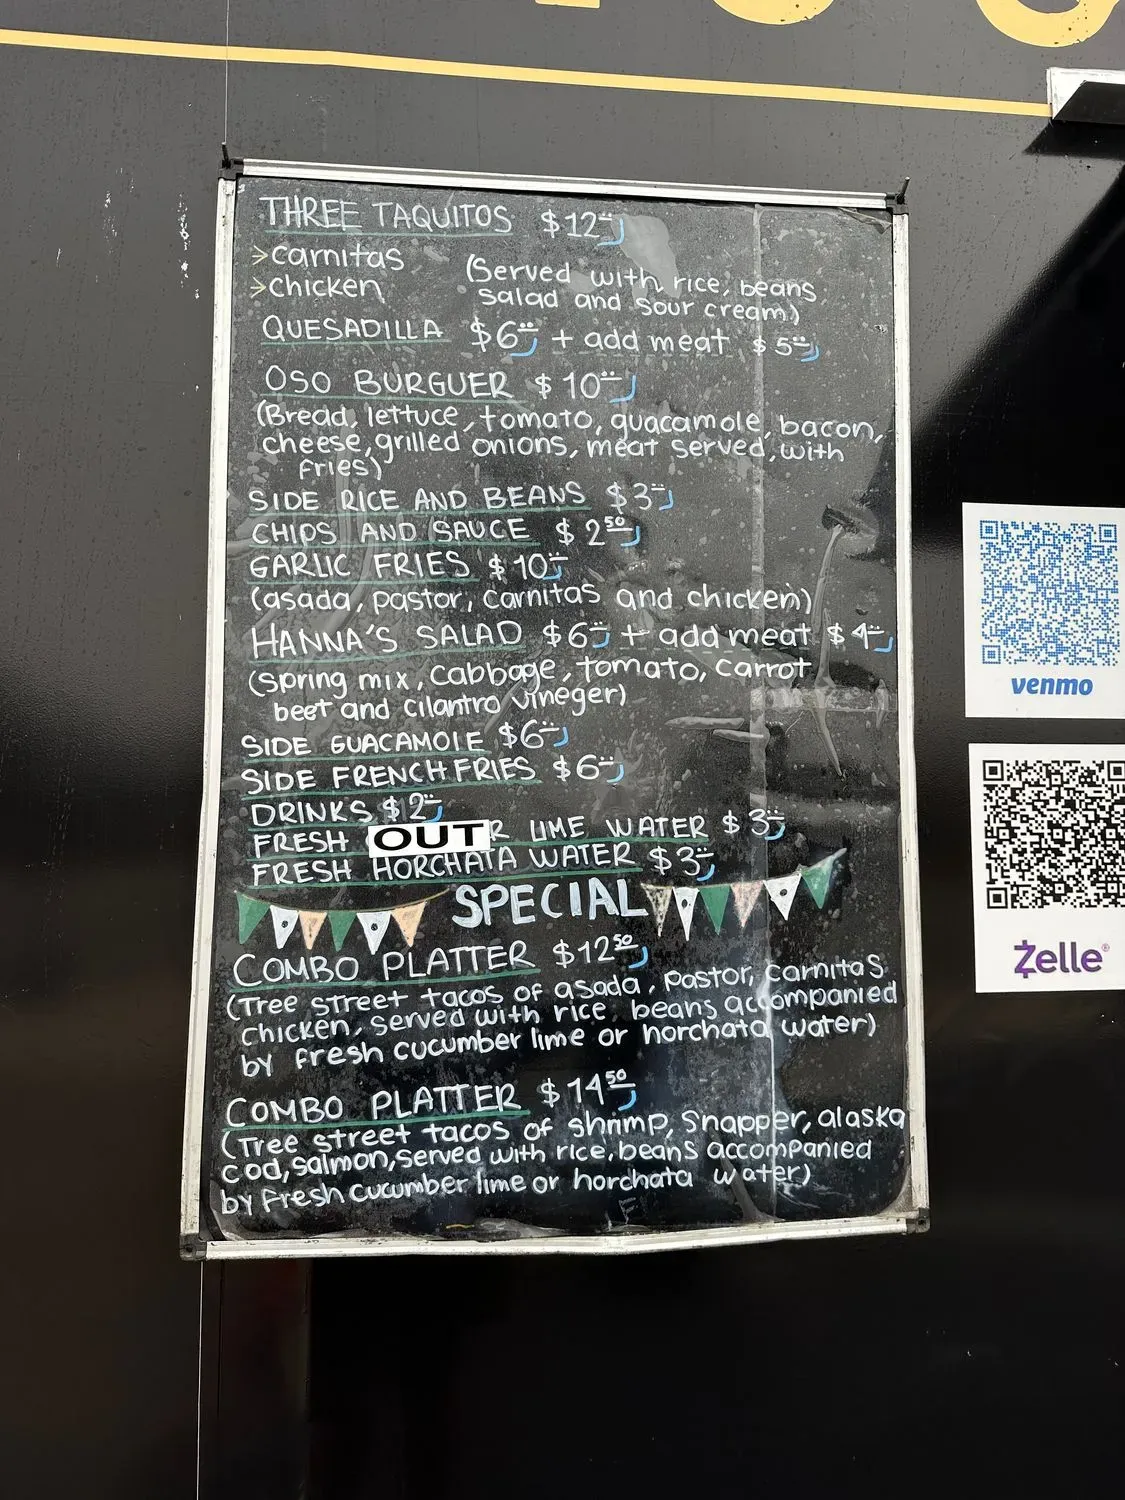 THREE TAQUITOS $12
>carnitas
>chicken
(Served with rice, beans,
salad and sour cream)
QUESADILLA $6 + add meat $5
OSO BURGUER $10
(Bread, lettuce, tomato, guacamole, bacon,
cheese, grilled onions, meat served, with
fries)
SIDE RICE AND BEANS $3
CHIPS AND SAUCE $2 50
GARLIC FRIES $10
(asada, pastor, carnitas and chicken)
HANNA'S SALAD $6 + add meat $4
(spring mix, cabbage, tomato, carrot
beet and cilantro vineger)
SIDE GUACAMOLE $6
SIDE FRENCH FRIES $6
DRINKS $2
FRESH OUT R LIME WATER $3
FRESH HORCHATA WATER $3
SPECIAL
COMBO PLATTER $12 50
(Tree street tacos of asada, pastor, carnitas
chicken, served with rice, beans accompanied
by fresh cucumber lime or horchata water)
COMBO PLATTER $14 50
(Tree street tacos of shrimp, snapper, alaska
cod, salmon, served with rice, beans accompanied
by fresh cucumber lime or horchata water)
venmo
Zelle®